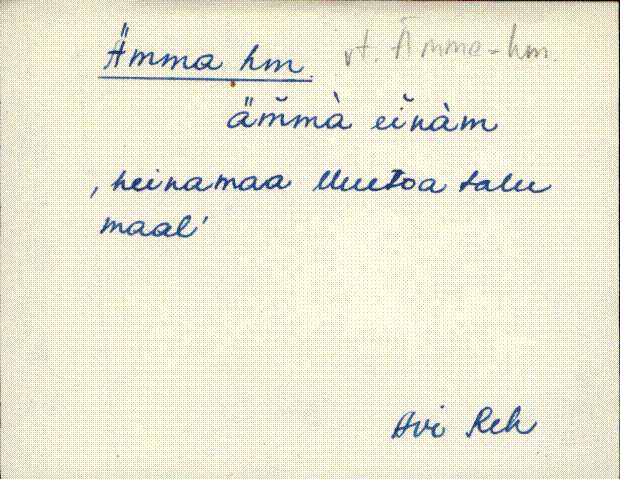 Ämma hm. vt. Ämma-hm.
ämmà einàm
, heinamaa Uuetoa talu
maal'
Avi Reh